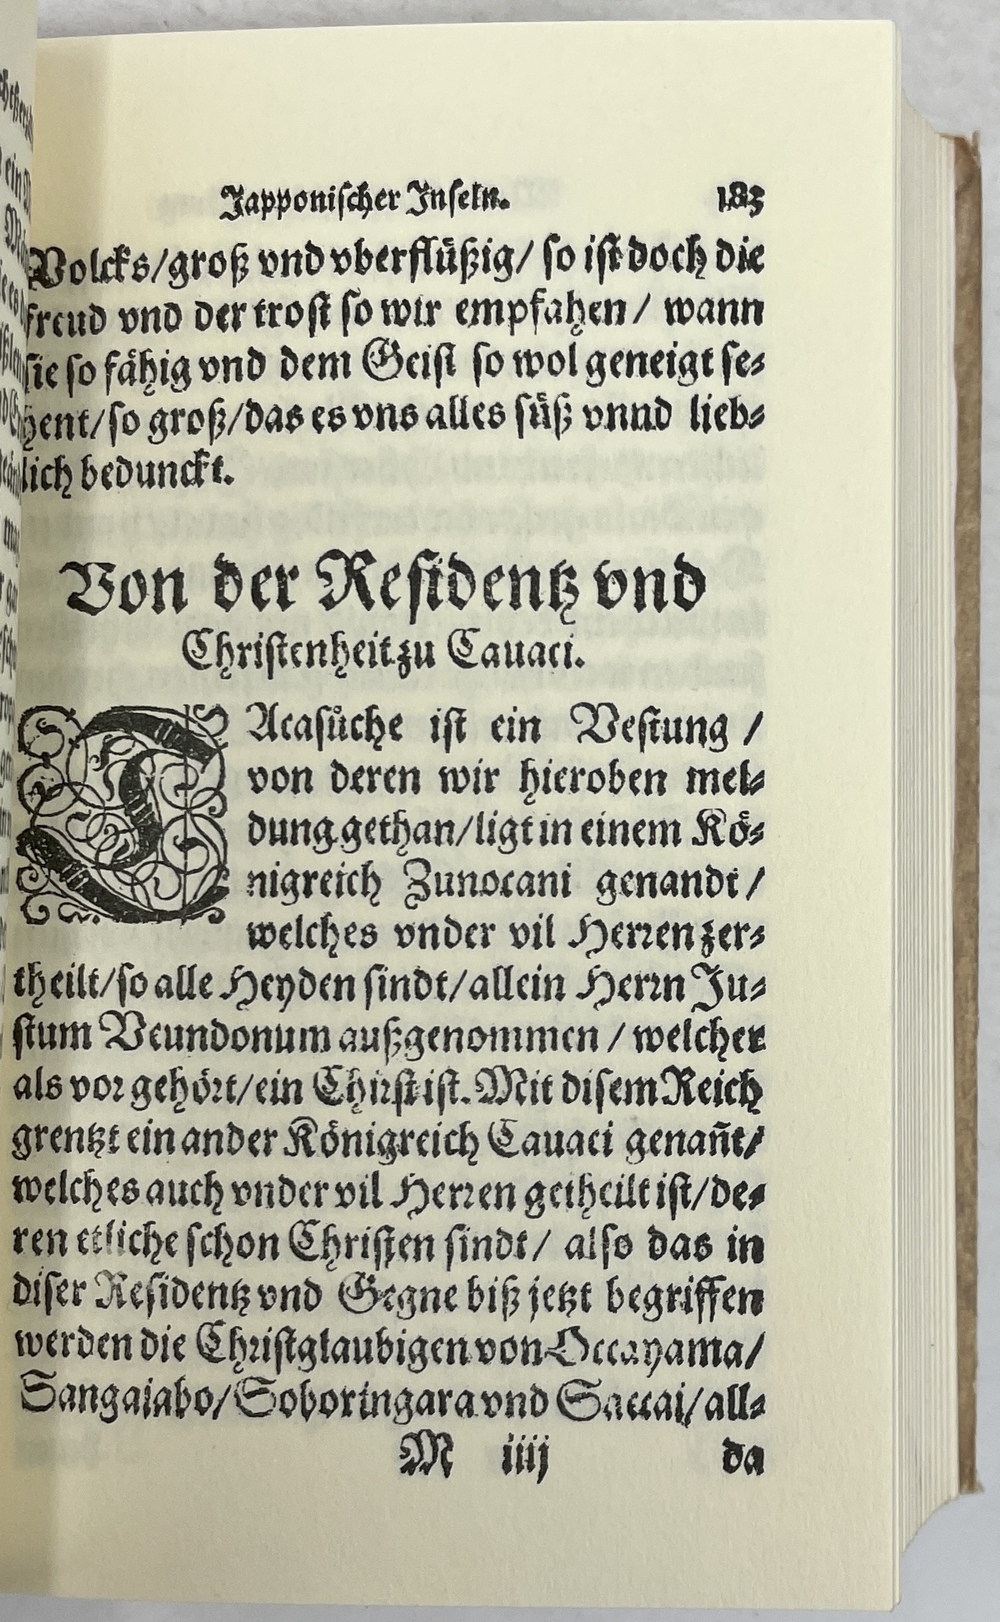 Japponischer Inseln. 183
Volcks/groß vnd vberflüßig/ so ist doch die
freud vnd der trost so wir empfahen/ wann
sie so fähig vnd dem Geist so wol geneigt se-
hent/so groß/das es vns alles süß vnnd lieb-
lich bedunckt.
Von der Residentz vnd
Christenheit zu Cauaci.
TAcasůche ist ein Vestung /
von deren wir hieroben mel-
dung gethan/ligt in einem Kö-
nigreich Zunocani genandt/
welches vnder vil Herren zer-
theilt/so alle Heyden sindt/allein Herrn Ju-
stum Veundonum außgenommen / welcher
als vor gehört/ein Chirst ist. Mit disem Reich
grentzt ein ander Königreich Cauaci genañt/
welches auch vnder vil Herren getheilt ist/de-
ren etliche schon Christen sindt/ also das in
diser Residentz vnd Gegne biß jetzt begriffen
werden die Christglaubigen von Occayama/
Sangaiabo/Soboringara vnd Saccai/all-
M iiij da